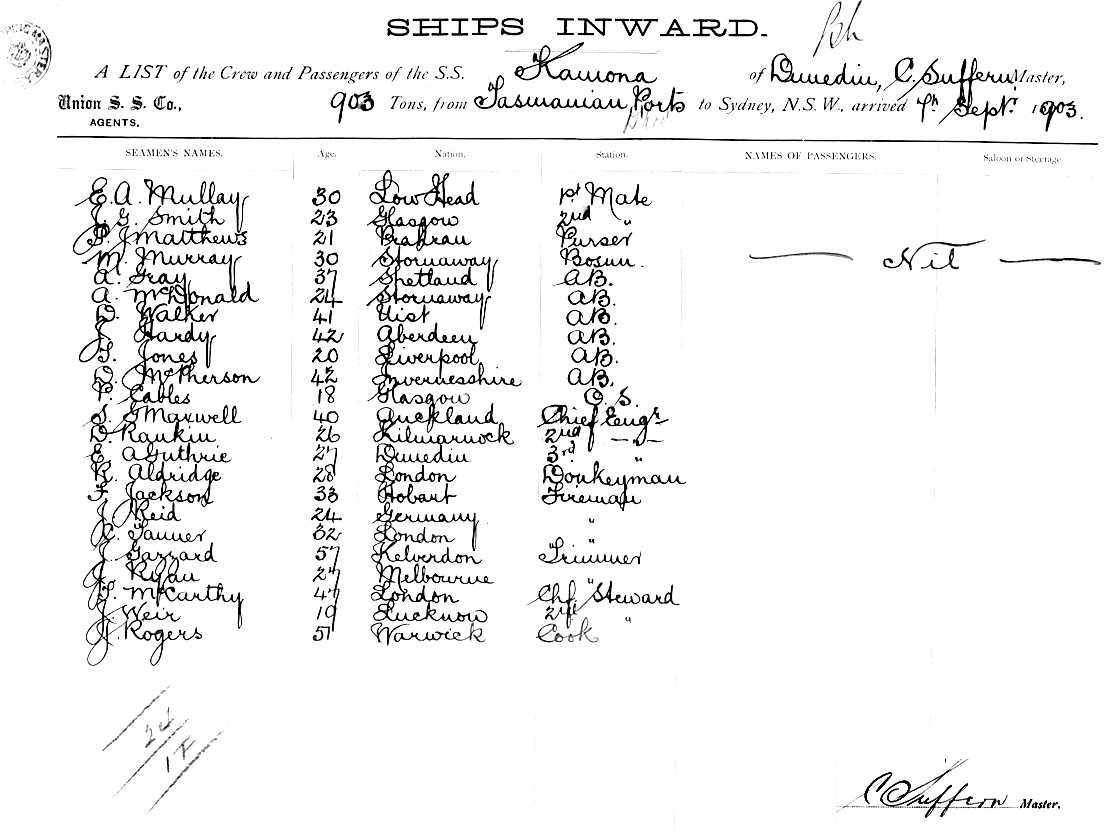 SHIPS INWARD.
A LIST of the Crew and Passengers of the S.S. Kamona of Dunedin, C. Suffern Master,
Union S. S. Co., 903 Tons, from Tasmanian Ports to Sydney, N.S.W., arrived 7th Sept. 1903.
AGENTS.
SEAMEN'S NAMES. Age. Nation. Station. NAMES OF PASSENGERS. Saloon or Steerage
E. A. Mullay 30 Low Head 1st Mate
J. G. Smith 23 Glasgow 2nd "
P. J Matthews 21 Prahran Purser
M. Murray 30 Stornaway Bosun. — Nil —
A. Gray 37 Shetland AB.
A. McDonald 24 Stornaway AB.
D. Walker 41 Uist AB.
J. Hardy 42 Aberdeen AB.
T. Jones 20 Liverpool AB.
D. McPherson 42 Invernesshire AB.
P. Eables 18 Glasgow O. S.
S. G Maxwell 40 Auckland Chief Engr
D. Rankin 26 Kilmarnock 2nd — " —
E. A Guthrie 27 Dunedin 3rd "
R. Aldridge 28 London Donkeyman
F. Jackson 33 Hobart Fireman
J. Reid 24 Germany "
Tanner 32 London "
J. Gazzard 57 Kelverdon Trimmer
J. Ryan 27 Melbourne "
T. McCarthy 47 London Chf. Steward
J. Weir 19 Lucknow 2nd "
H. Rogers 51 Warwick Cook
24
1 F
C Suffern Master.